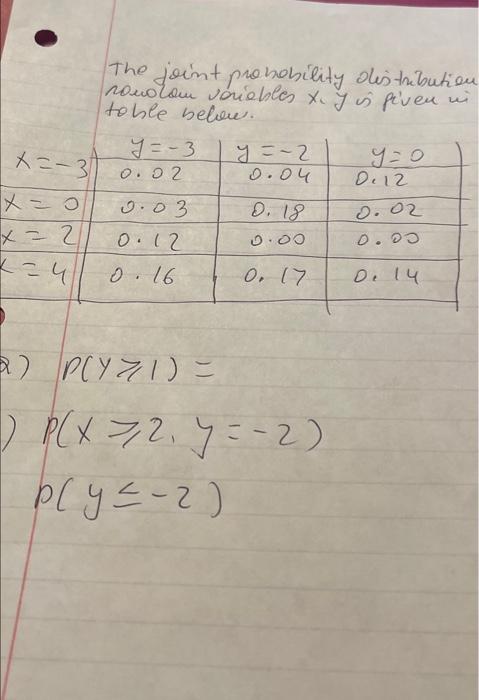 The joint probability distribution
random variables X, Y is given in
table below.
y = -3 y = -2 y = 0
x = -3 0.02 0.04 0.12
x = 0 0.03 0.18 0.02
x = 2 0.12 0.00 0.00
x = 4 0.16 0.17 0.14
2) P(Y ⩾ 1) =
) P(X ⩾ 2, y = -2)
P( y ≤ -2 )